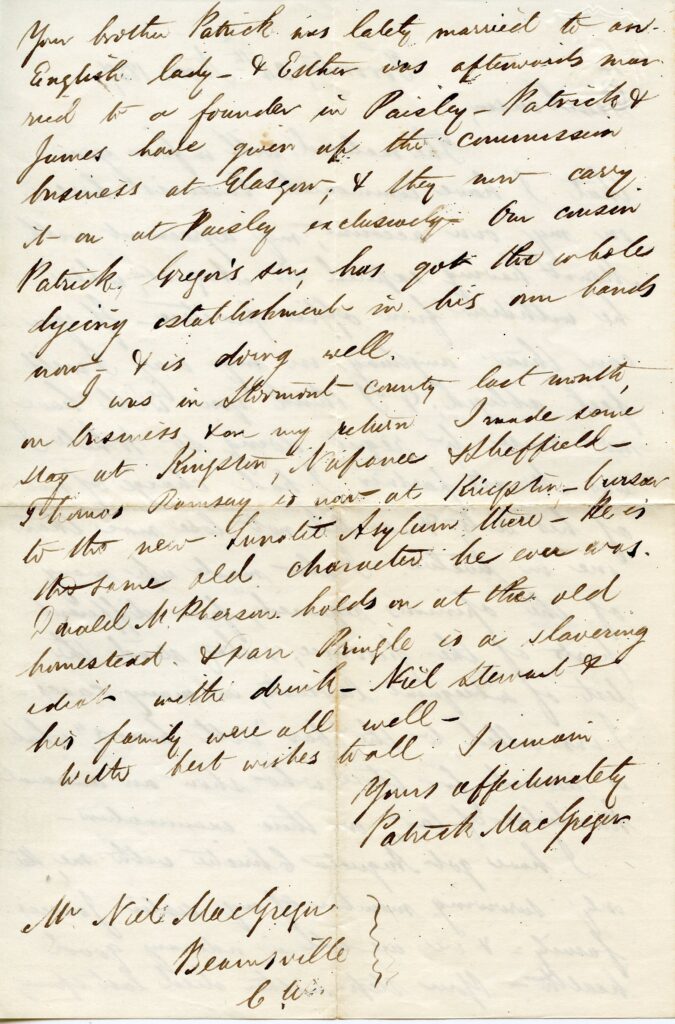 Your brother Patrick was lately married to an
English lady – & Esther was afterwards mar
ried to a founder in Paisley – Patrick &
James have given up the commission
business at Glasgow, & they now carry
it on at Paisley exclusively – Our cousin
Patrick, Gregor's son, has got the whole
dyeing establishment in his own hands
now – & is doing well.
I was in Stormont county last month,
on business, & on my return I made some
stay at Kingston, Napanee & Sheffield –
Thomas Ramsay is now at Kingston, – bursar
to the new Lunatic Asylum there – He is
the same old character he ever was.
Donald McPherson holds on at the old
homestead. & Pringle is a slavering
idiot with drink – Niel Stewart &
his family were all well –
With best wishes to all I remain
Yours affectionately
Patrick MacGregor
Mr Niel MacGregor
Beamsville
C W